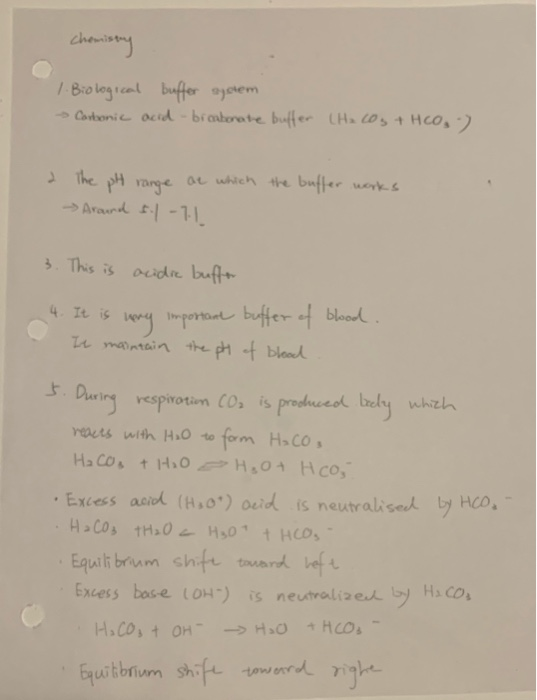 chemistry
1. Biological buffer system
→ Carbonic acid - bicarbonate buffer (H₂CO₃ + HCO₃⁻)
2 The pH range at which the buffer works
→ Around 5.1 - 7.1
3. This is acidic buffer
4. It is very important buffer of blood.
It maintain the pH of blood
5. During respiration CO₂ is produced body which
reacts with H₂O to form H₂CO₃
H₂CO₃ + H₂O ⇌ H₃O + HCO₃⁻
· Excess acid (H₃O⁺) acid is neutralised by HCO₃⁻
· H₂CO₃ + H₂O ← H₃O⁺ + HCO₃⁻
· Equilibrium shift toward left
· Excess base (OH⁻) is neutralized by H₂CO₃
· H₂CO₃ + OH⁻ → H₂O + HCO₃⁻
· Equilibrium shift toward right